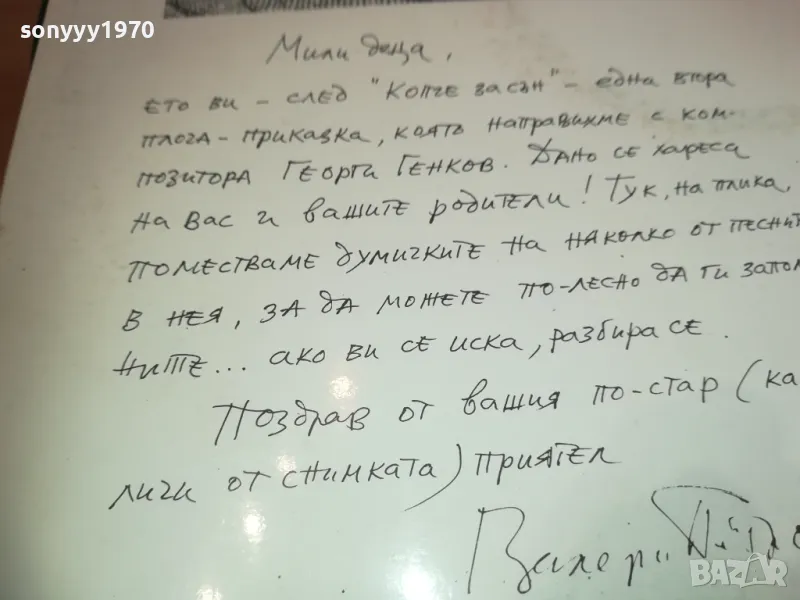 sonyyy1970
Мили деца,
ето ви - след "Копче за сън" - една втора
плоча - приказка, която направихме с ком-
позитора Георги Генков. Дано се хареса
на вас и вашите родители! Тук, на плика,
поместваме думичките на няколко от песните
в нея, за да можете по-лесно да ги запом
ните... ако ви се иска, разбира се.
Поздрав от вашия по-стар (ка
личи от снимката) приятел
Валери
BAZAR